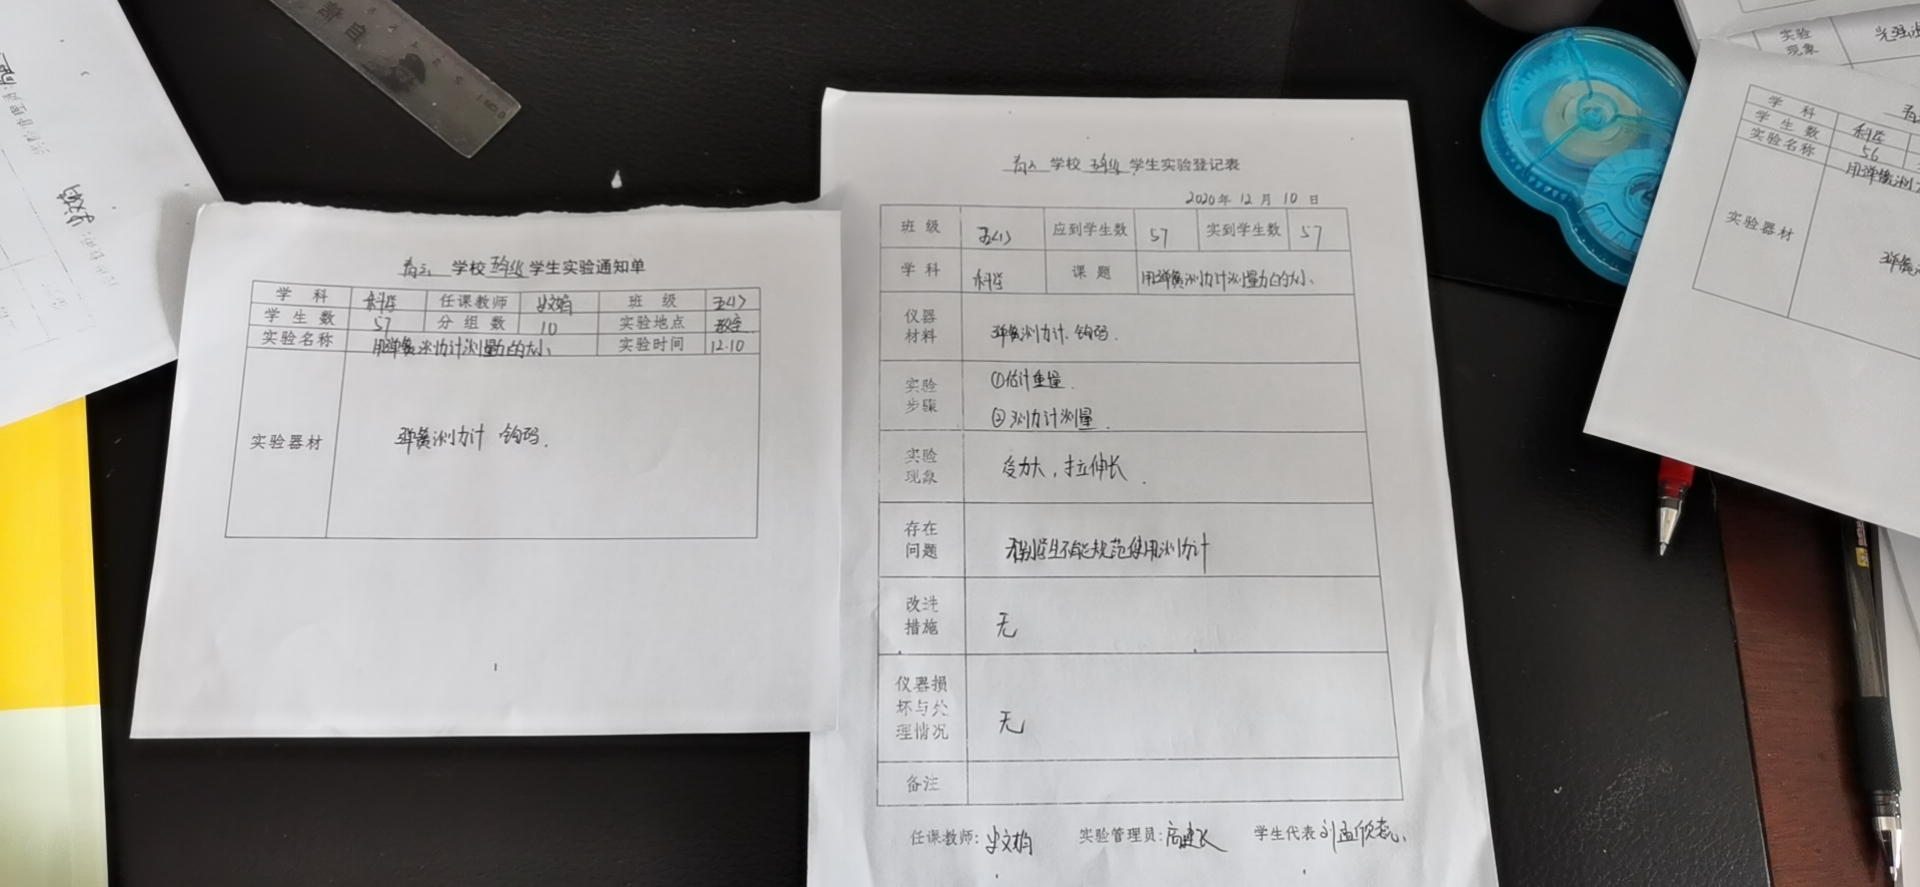 学校 五年级 学生实验通知单
学科 科学 任课教师 史文娟 班级 五(1)
学生数 57 分组数 10 实验地点 教室
实验名称 用弹簧测力计测量力的大小 实验时间 12.10
实验器材 弹簧测力计 钩码.
学校 五年级 学生实验登记表
2020年12月10日
班级 五(1) 应到学生数 57 实到学生数 57
学科 科学 课题 用弹簧测力计测量力的大小、
仪器材料 弹簧测力计、钩码.
实验步骤 ①估计重量.
②测力计测量.
实验现象 受力大,拉伸长.
存在问题 个别学生不能规范使用测力计
改进措施 无
仪器损坏与处理情况 无
备注
任课教师:史文娟 实验管理员: 学生代表
实验现象
学科 科学
学生数 56
实验名称 用弹簧测力
实验器材 弹簧